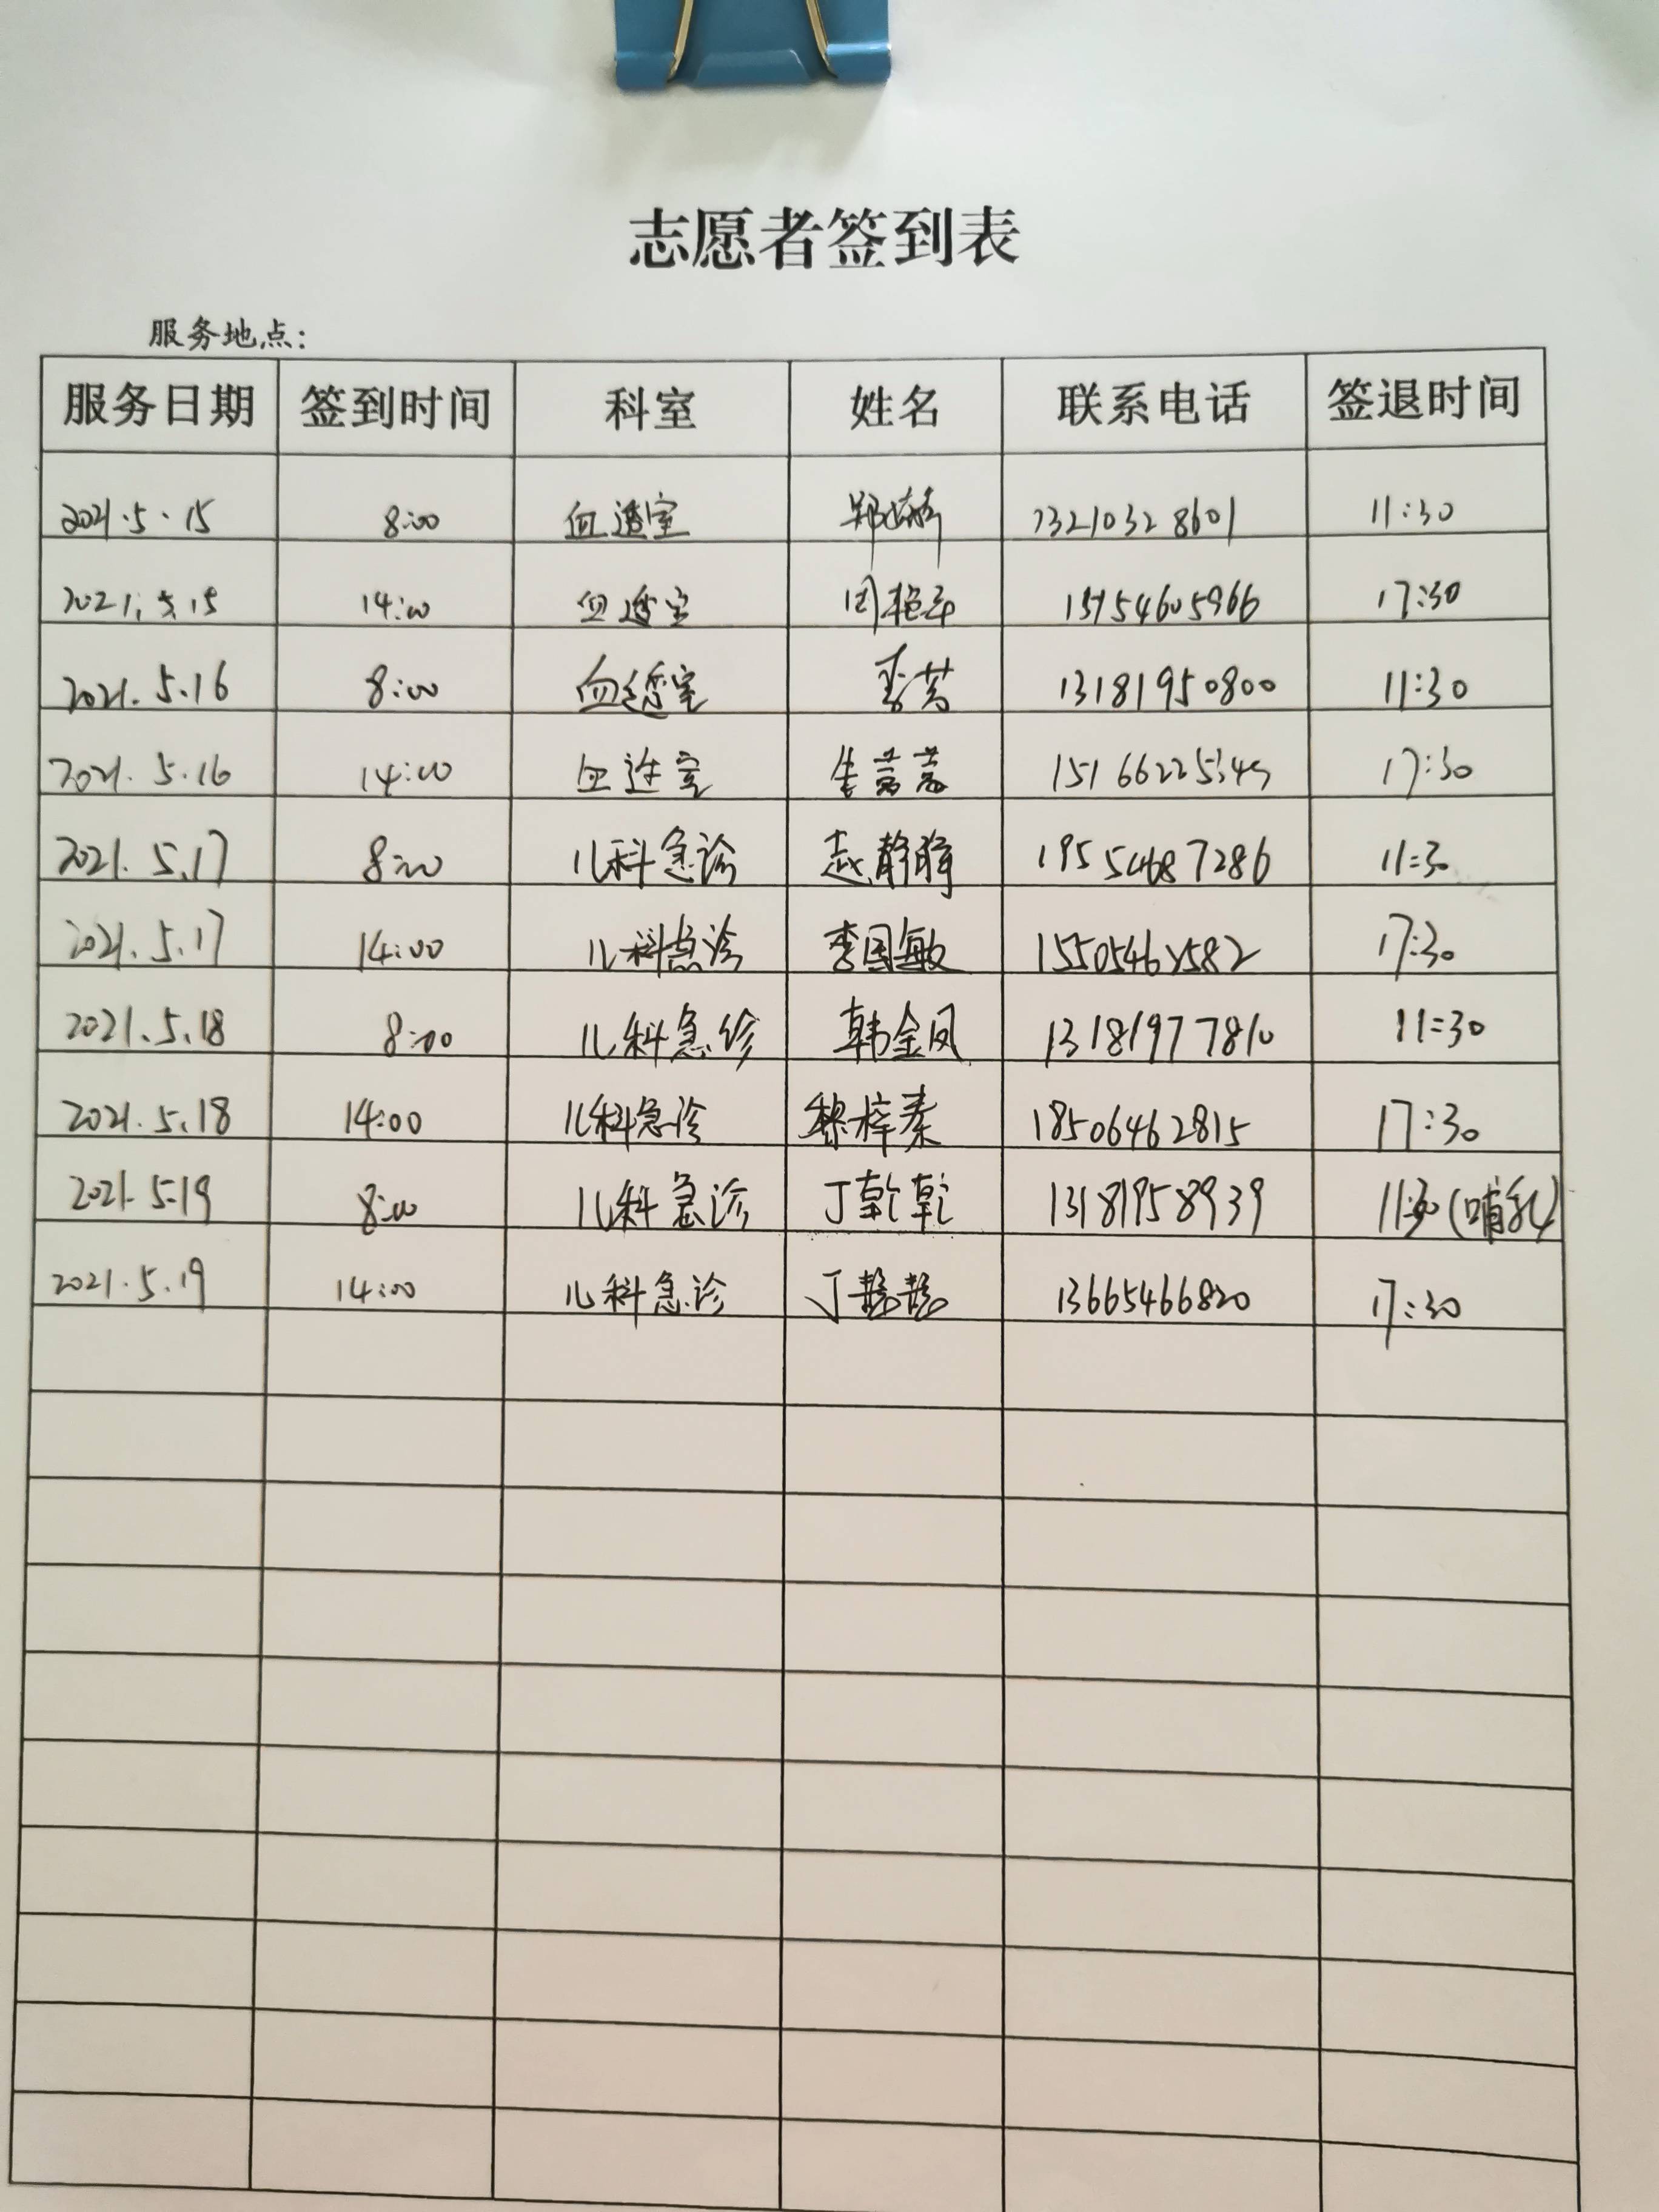 志愿者签到表
服务地点:
服务日期 签到时间 科室 姓名 联系电话 签退时间
2021.5.15 8:00 血透室 11:30
2021.5.15 14:00 血透室 17:30
2021.5.16 8:00 血透室 李芳 13181950800 11:30
2021.5.16 14:00 血透室 17:30
2021.5.17 8:00 儿科急诊 赵静静 19554687286 11:30
2021.5.17 14:00 儿科急诊 李国敏 17:30
2021.5.18 8:00 儿科急诊 韩金凤 13181977810 11:30
2021.5.18 14:00 儿科急诊 穆梓秦 18506462815 17:30
2021.5.19 8:00 儿科急诊 丁乾乾 13181958939 11:30(哺乳)
2021.5.19 14:00 儿科急诊 13665466820 17:30